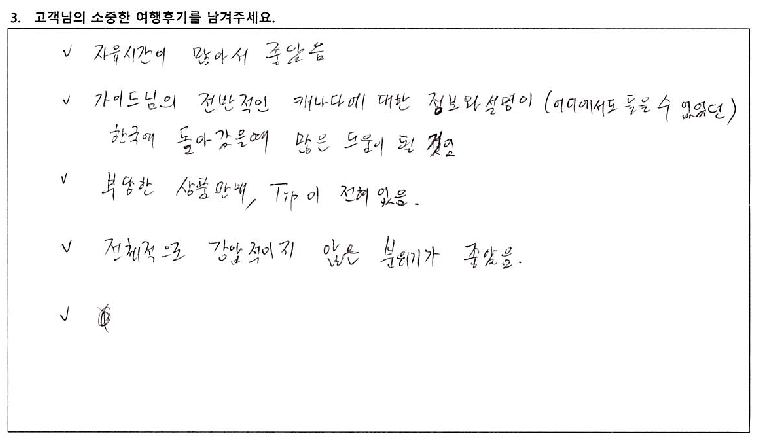 3. 고객님의 소중한 여행후기를 남겨주세요.
✓ 자유시간이 많아서 좋았음
✓ 가이드님의 전반적인 캐나다에 대한 정보와 설명이 (어디에서도 들을 수 없었던)
한국에 돌아갔을때 많은 도움이 될 것임
✓ 부담한 상품판매, Tip이 전혀없음.
✓ 전체적으로 강압적이지 않은 분위기가 좋았음.
✓